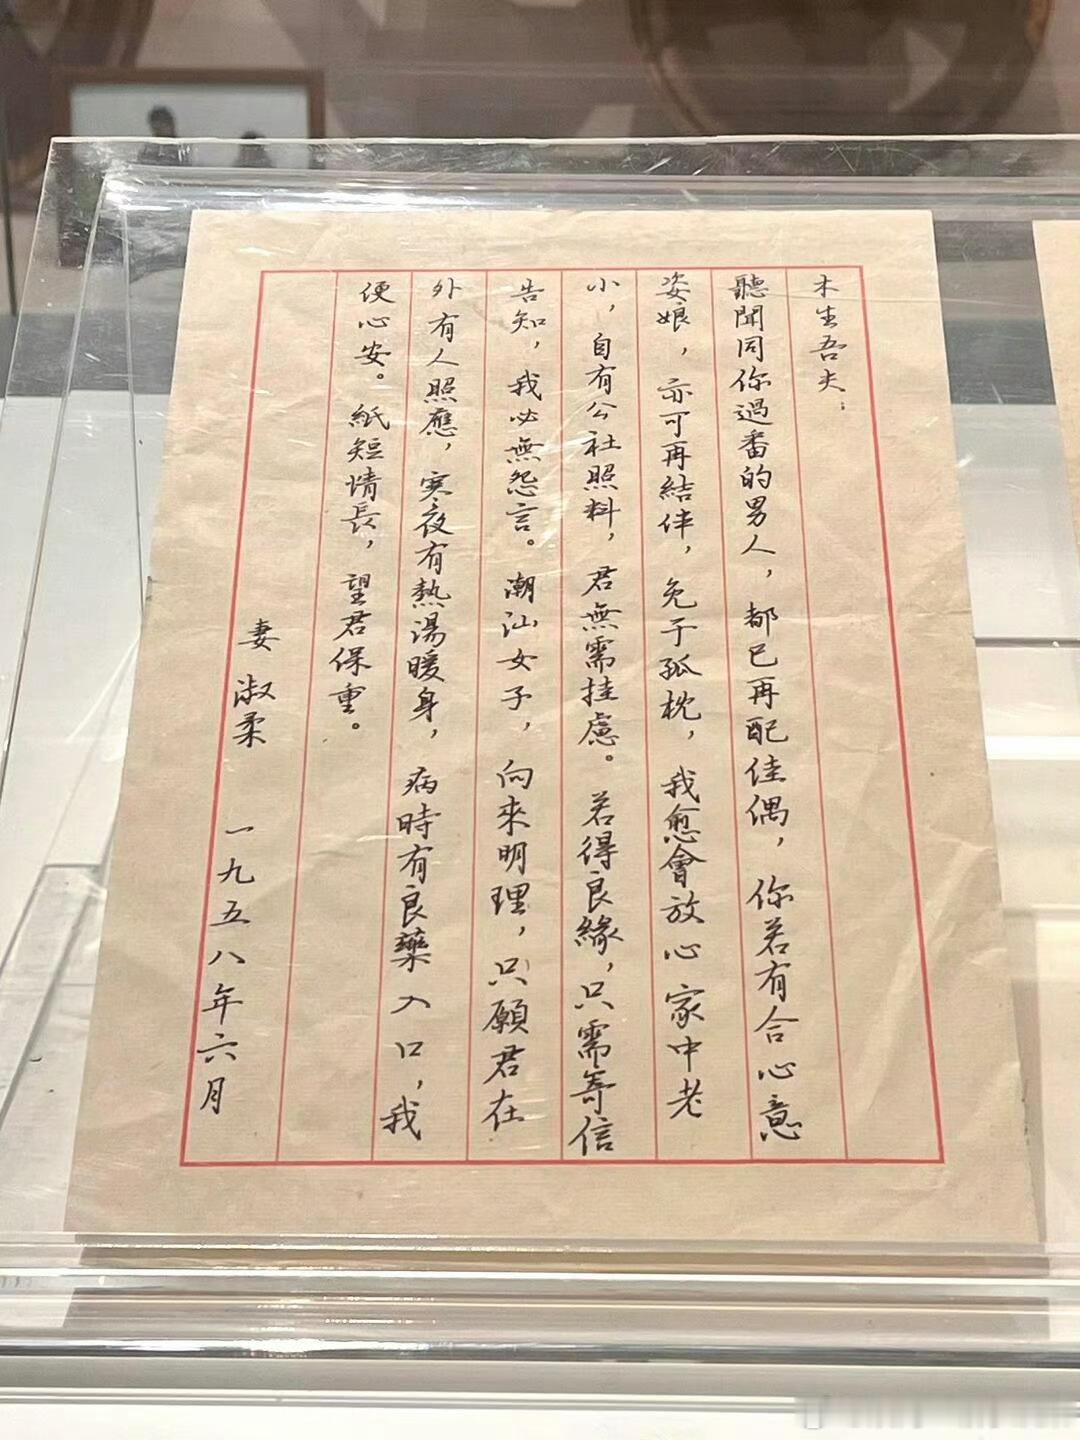 木生吾夫：
聽聞同你過番的男人，都已再配佳偶，你若有合心意
姿娘，亦可再結伴，免于孤枕，我愈會放心家中老
小，自有公社照料，君無需挂慮。若得良緣，只需寄信
告知，我必無怨言。潮汕女子，向來明理，只願君在
外有人照應，寒夜有熱湯暖身，病時有良藥入口，我
便心安。紙短情長，望君保重。
妻 淑柔 一九五八年六月